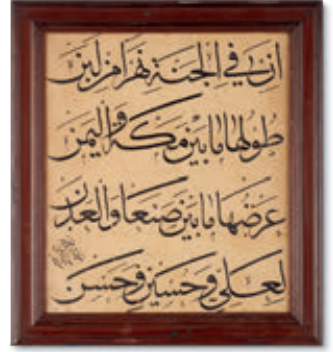 ان في الجنة نهرا من لبن
طولها ما بين مكة واليمن
عرضها ما بين صنعا والعدن
لعلي وحسين وحسن